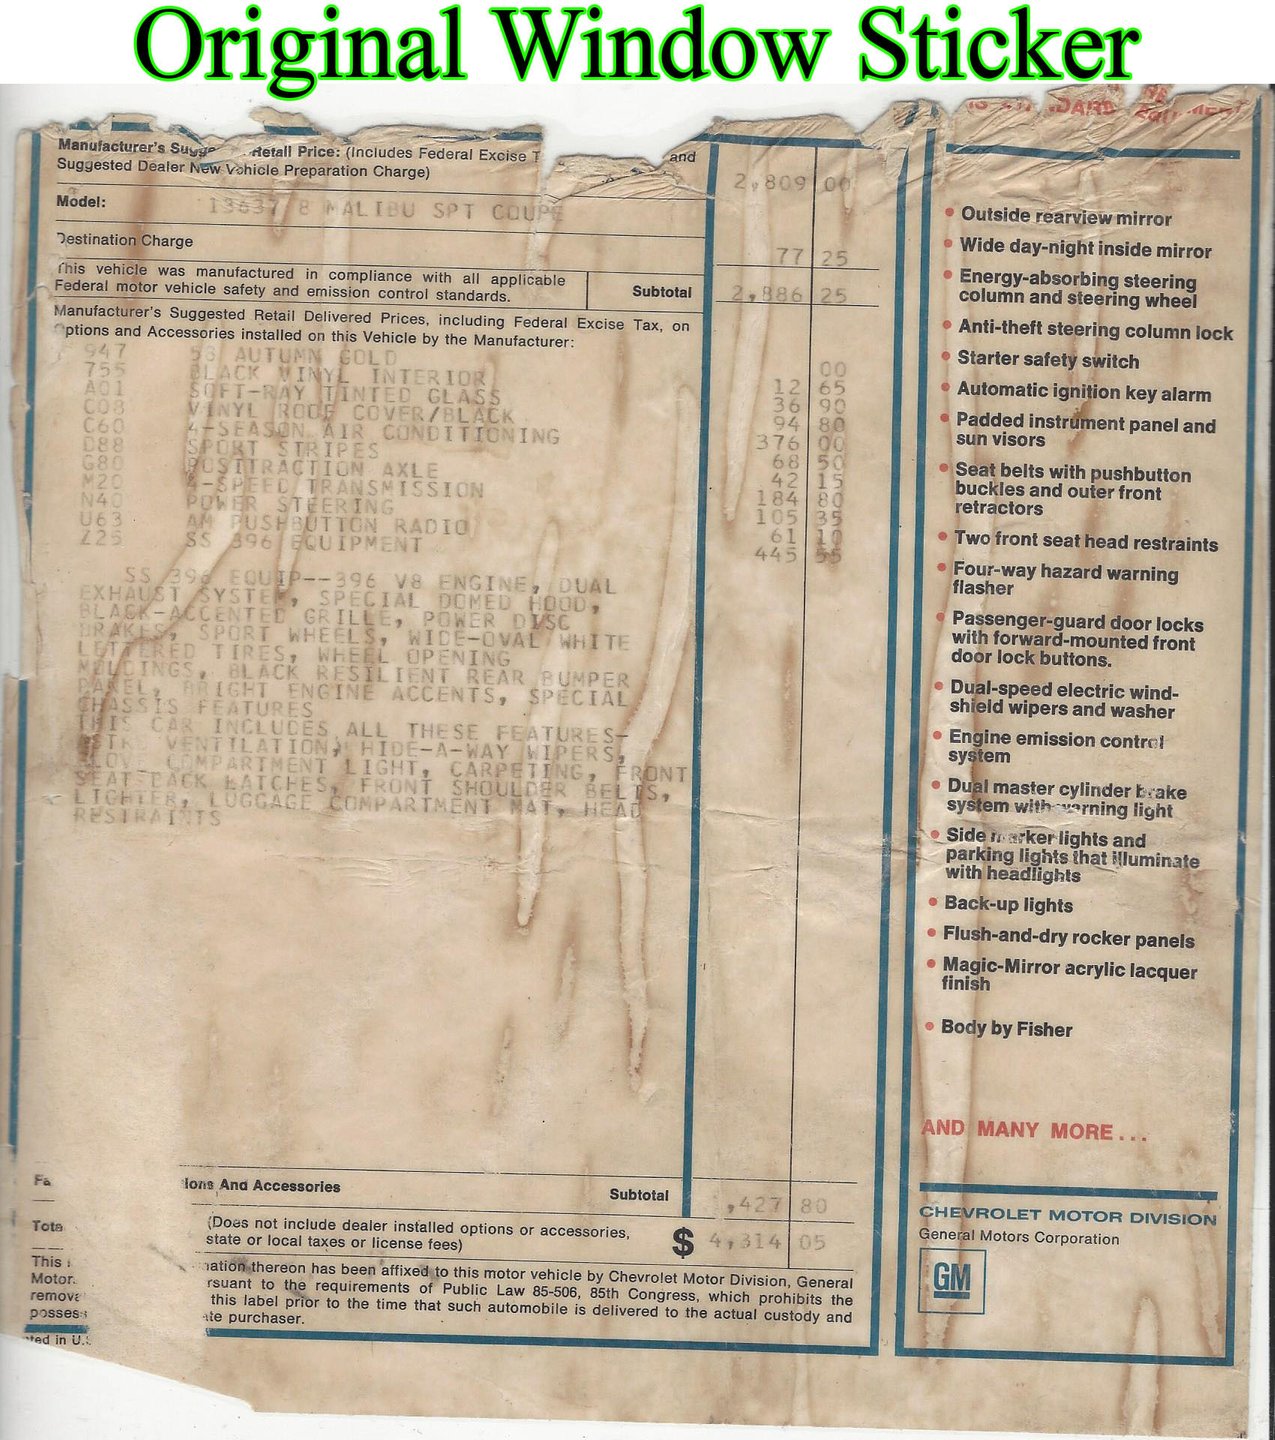 Original Window Sticker
Manufacturer's Retail Price: (Includes Federal Excise and
Suggested Dealer New Vehicle Preparation Charge)
2,809 00
Model: 13637/8 MALIBU SPT COUPE
Destination Charge
77 25
This vehicle was manufactured in compliance with all applicable
Federal motor vehicle safety and emission control standards.
Subtotal 2,886 25
Manufacturer's Suggested Retail Delivered Prices, including Federal Excise Tax, on
Options and Accessories installed on this Vehicle by the Manufacturer:
947 53 AUTUMN GOLD
755 BLACK VINYL INTERIOR 00
A01 SOFT-RAY TINTED GLASS 12 65
C08 VINYL ROOF COVER/BLACK 36 90
C60 4-SEASON AIR CONDITIONING 94 80
D88 SPORT STRIPES 376 00
G80 POSITRACTION AXLE 68 50
M20 4-SPEED TRANSMISSION 42 15
N40 POWER STEERING 184 80
U63 AM PUSHBUTTON RADIO 105 35
Z25 SS 396 EQUIPMENT 61 10
445 55
SS 396 EQUIP--396 V8 ENGINE, DUAL
EXHAUST SYSTEM, SPECIAL DOMED HOOD,
BLACK-ACCENTED GRILLE, POWER DISC
BRAKES, SPORT WHEELS, WIDE-OVAL WHITE
LETTERED TIRES, WHEEL OPENING
MOLDINGS, BLACK RESILIENT REAR BUMPER
PANEL, BRIGHT ENGINE ACCENTS, SPECIAL
CHASSIS FEATURES
THIS CAR INCLUDES ALL THESE FEATURES-
ASTRO VENTILATION, HIDE-A-WAY WIPERS,
GLOVE COMPARTMENT LIGHT, CARPETING, FRONT
SEAT-BACK LATCHES, FRONT SHOULDER BELTS,
LIGHTER, LUGGAGE COMPARTMENT MAT, HEAD
RESTRAINTS
ions And Accessories
Subtotal ,427 80
Tota (Does not include dealer installed options or accessories,
state or local taxes or license fees)
$ 4,314 05
This thereon has been affixed to this motor vehicle by Chevrolet Motor Division, General
Motor rsuant to the requirements of Public Law 85-506, 85th Congress, which prohibits the
remova this label prior to the time that such automobile is delivered to the actual custody and
possess te purchaser.
ted in U.S
• Outside rearview mirror
• Wide day-night inside mirror
• Energy-absorbing steering
column and steering wheel
• Anti-theft steering column lock
• Starter safety switch
• Automatic ignition key alarm
• Padded instrument panel and
sun visors
• Seat belts with pushbutton
buckles and outer front
retractors
• Two front seat head restraints
• Four-way hazard warning
flasher
• Passenger-guard door locks
with forward-mounted front
door lock buttons.
• Dual-speed electric wind-
shield wipers and washer
• Engine emission control
system
• Dual master cylinder brake
system with warning light
• Side marker lights and
parking lights that illuminate
with headlights
• Back-up lights
• Flush-and-dry rocker panels
• Magic-Mirror acrylic lacquer
finish
• Body by Fisher
AND MANY MORE...
CHEVROLET MOTOR DIVISION
General Motors Corporation
GM